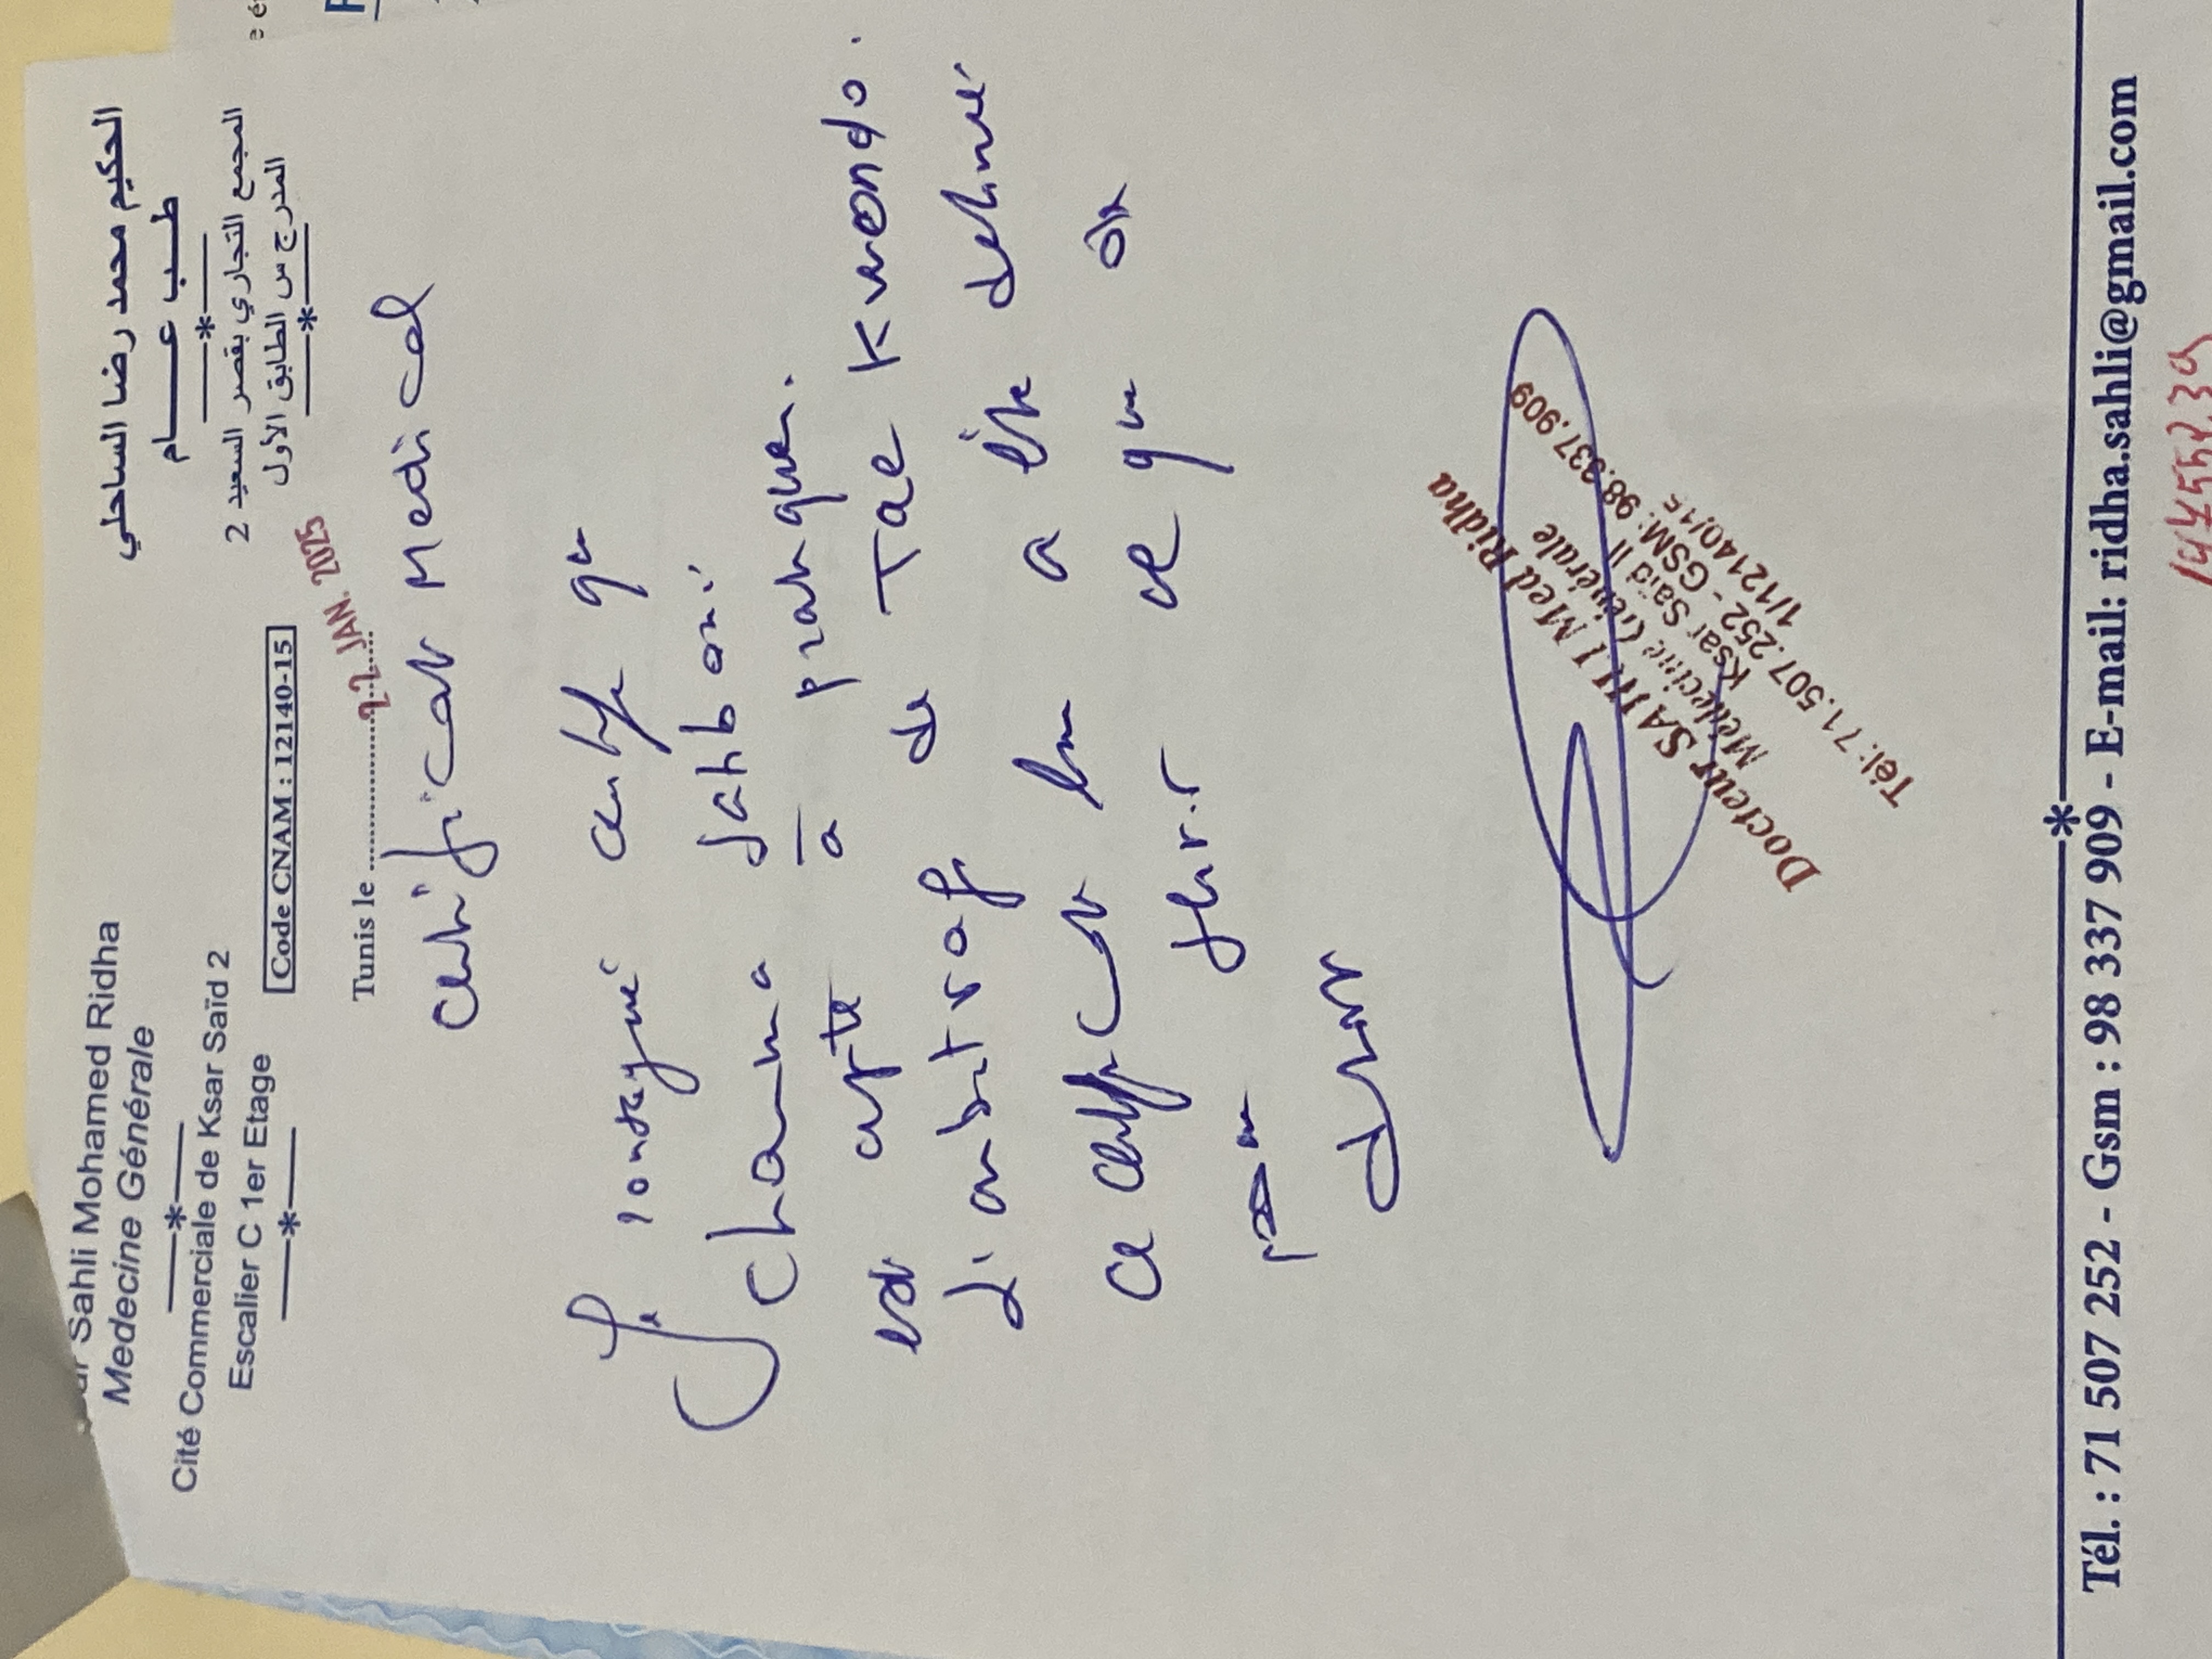 Sahli Mohamed Ridha
Medecine Générale
Cité Commerciale de Ksar Saïd 2
Escalier C 1er Etage
الحكيم محمد رضا الساحلي
طب عام
المجمع التجاري بقصر السعيد 2
المدرج س الطابق الأول
Code CNAM : 12140-15
Tunis le 22 JAN. 2025
Certificat Medical
Je soussigné certifie que
Chaima Sahbani
est apte à pratiquer
l'arbitrage de Tae Kwondo.
Ce certificat lui a été délivré
pour servir ce que de
droit
Docteur SAHLI Med Ridha
Medecine Générale
Ksar Saïd II
Tél: 71.507.252 - GSM: 98.337.909
1/12140/15
Tél. : 71 507 252 - Gsm : 98 337 909 - E-mail: ridha.sahli@gmail.com